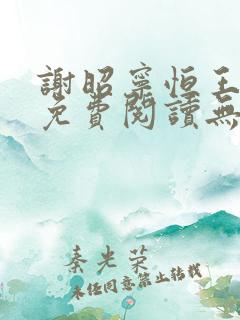 謝昭寧恒王
免費閱讀無
秦光榮
未經同意禁止轉載